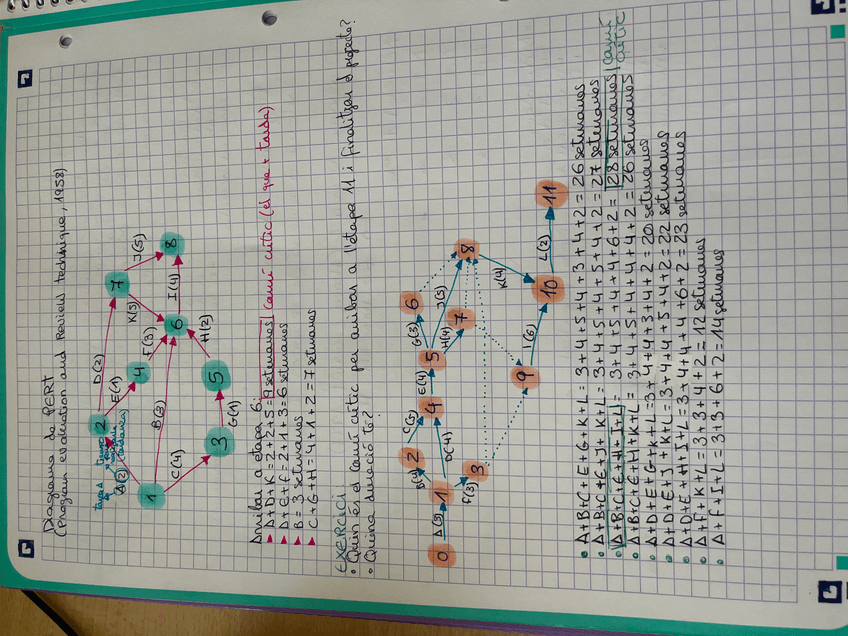 Diagrama de PERT
(Program evaluation and Review technique, 1958)
tarea tiempo
A(2) (tardanza)
D(2)
E(1)
B(3)
C(4)
F(3)
K(3)
J(5)
I(4)
H(2)
G(1)
1
2
3
4
5
6
7
8
Arribar a etapa 6:
A+D+K = 2+2+5 = 9 setmanes | camí crític (el que + tarda)
A+E+F = 2+1+3 = 6 setmanes
B = 3 setmanes
C+G+H = 4+1+2 = 7 setmanes
EXERCICI
• Quin és el camí crític per arribar a l'etapa 11 i finalitzar el projecte?
• Quina duració té?
0
1
2
3
4
5
6
7
8
9
10
11
A(3)
B(4)
C(5)
D(4)
F(3)
E(4)
G(3)
J(5)
H(4)
K(4)
I(6)
L(2)
• A+B+C+E+G+K+L = 3+4+5+4+3+4+2 = 26 setmanes
• A+B+C+E+J+K+L = 3+4+5+4+5+4+2 = 27 setmanes
• A+B+C+E+H+I+L = 3+4+5+4+4+6+2 = 28 setmanes | camí crític
• A+B+C+E+H+K+L = 3+4+5+4+4+4+2 = 26 setmanes
• A+D+E+G+K+L = 3+4+4+3+4+2 = 20 setmanes
• A+D+E+J+K+L = 3+4+4+5+4+2 = 22 setmanes
• A+D+E+H+I+L = 3+4+4+4+6+2 = 23 setmanes
• A+F+K+L = 3+3+4+2 = 12 setmanes
• A+F+I+L = 3+3+6+2 = 14 setmanes